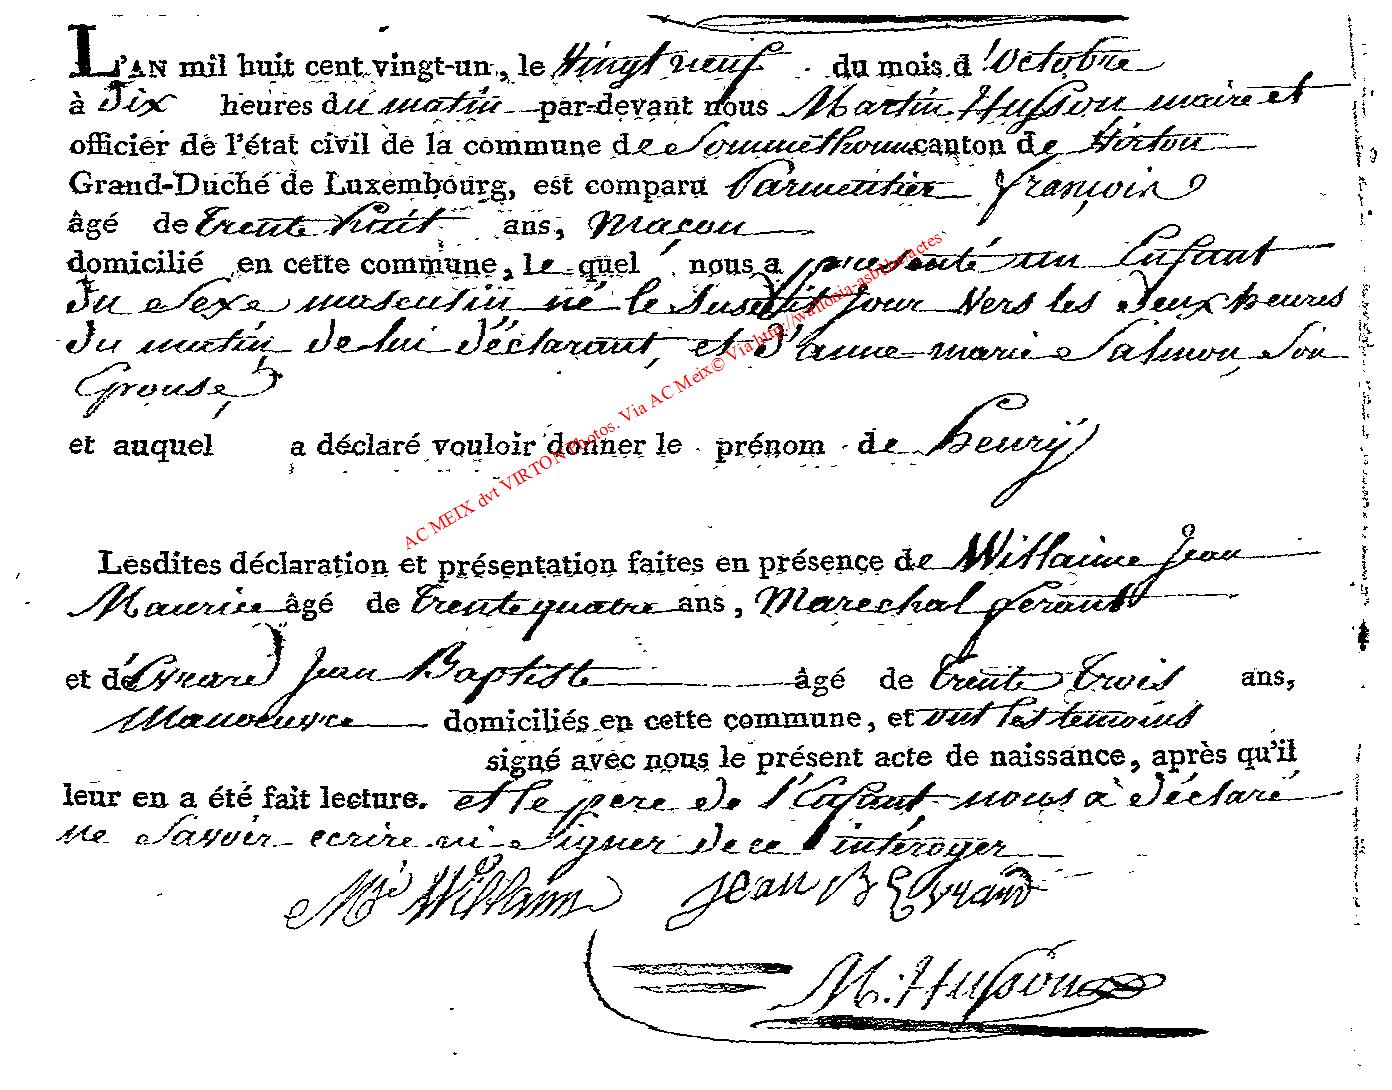 L'AN mil huit cent vingt-un, le Vingt neuf du mois d'Octobre
à Dix heures du matin par-devant nous Martin Husson maire et
officier de l'état civil de la commune de Sommethonne canton de Virton
Grand-Duché de Luxembourg, est comparu Parmentier françois
âgé de trente huit ans, Maçon
domicilié en cette commune, lequel nous a presenté un Enfant
Du Sexe masculin né le susdit jour Vers les deux heures
Du matin de lui déclarant, et d'anne marie Salmon, Son
Epouse,
et auquel a déclaré vouloir donner le prénom de henrÿ
Lesdites déclaration et présentation faites en présence de Willaime Jean
Maurice âgé de trente quatre ans, Marechal ferant
et de Evrard Jean Baptiste âgé de trente trois ans,
Manoeuvre domiciliés en cette commune, et ont les temoins
signé avec nous le présent acte de naissance, après qu'il
leur en a été fait lecture. et le père de l'Enfant nous a déclaré
ne Savoir ecrire ni Signer de ce intéroger
Mce Willaim Jean B Evrard
M. Husson
AC MEIX dvt VIRTON Photos. Via AC Meix© Via http://wallonia-asbl.be/actes